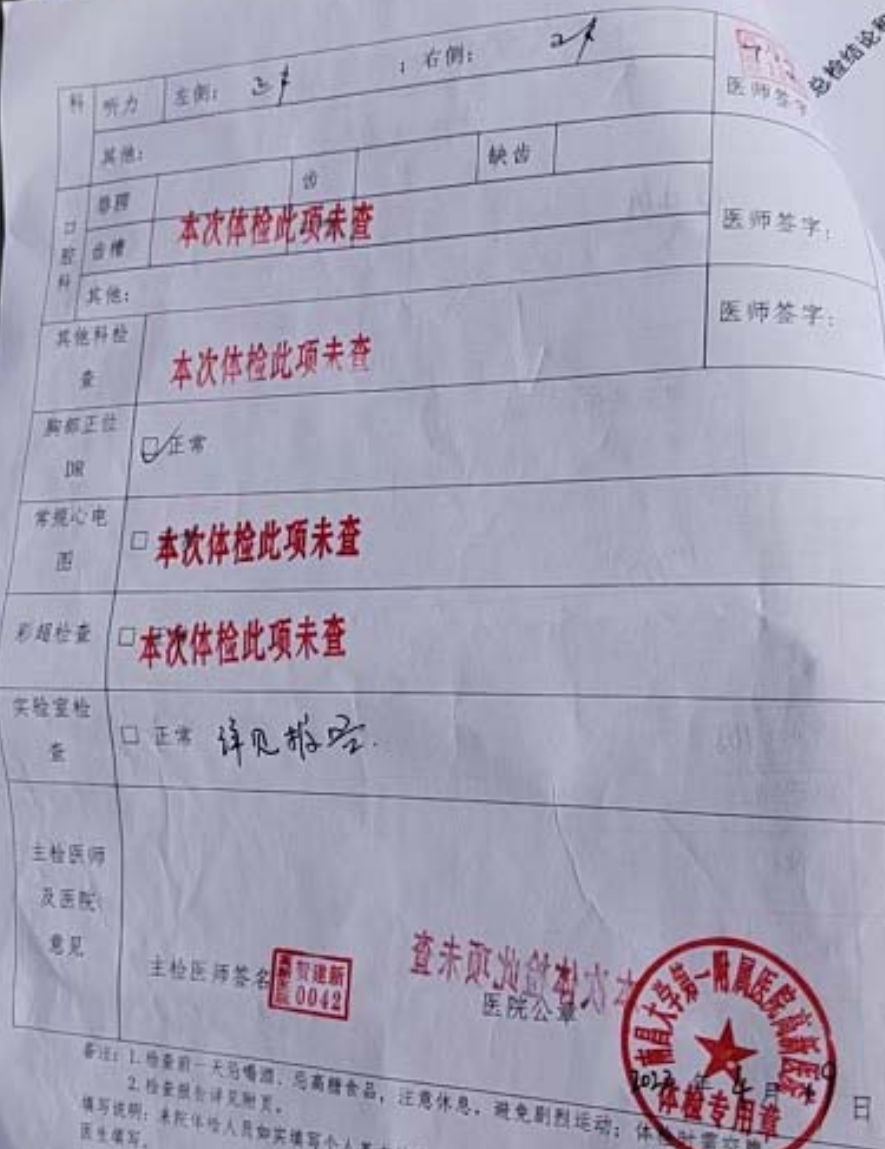 总检结论和
科 听力 左侧: 正常 ; 右侧: 正常
医师签字
其他:
口腔科 唇腭 齿 缺齿
本次体检此项未查
齿槽
医师签字:
其他:
其他科检查 本次体检此项未查 医师签字:
胸部正位DR □正常
常规心电图 □ 本次体检此项未查
彩超检查 □ 本次体检此项未查
实验室检查 □ 正常 详见报告.
主检医师及医院意见
主检医师签名 贺建新 0042
高新医院
本次体检此项未查
医院公章
南昌大学第一附属医院高新医院
体检专用章
年 4 月 日
备注: 1. 检查前一天忌喝酒, 忌高糖食品, 注意休息, 避免剧烈运动; 体检时需空腹
2. 检查报告详见附页。
填写说明: 来院体检人员如实填写个人基
医生填写.